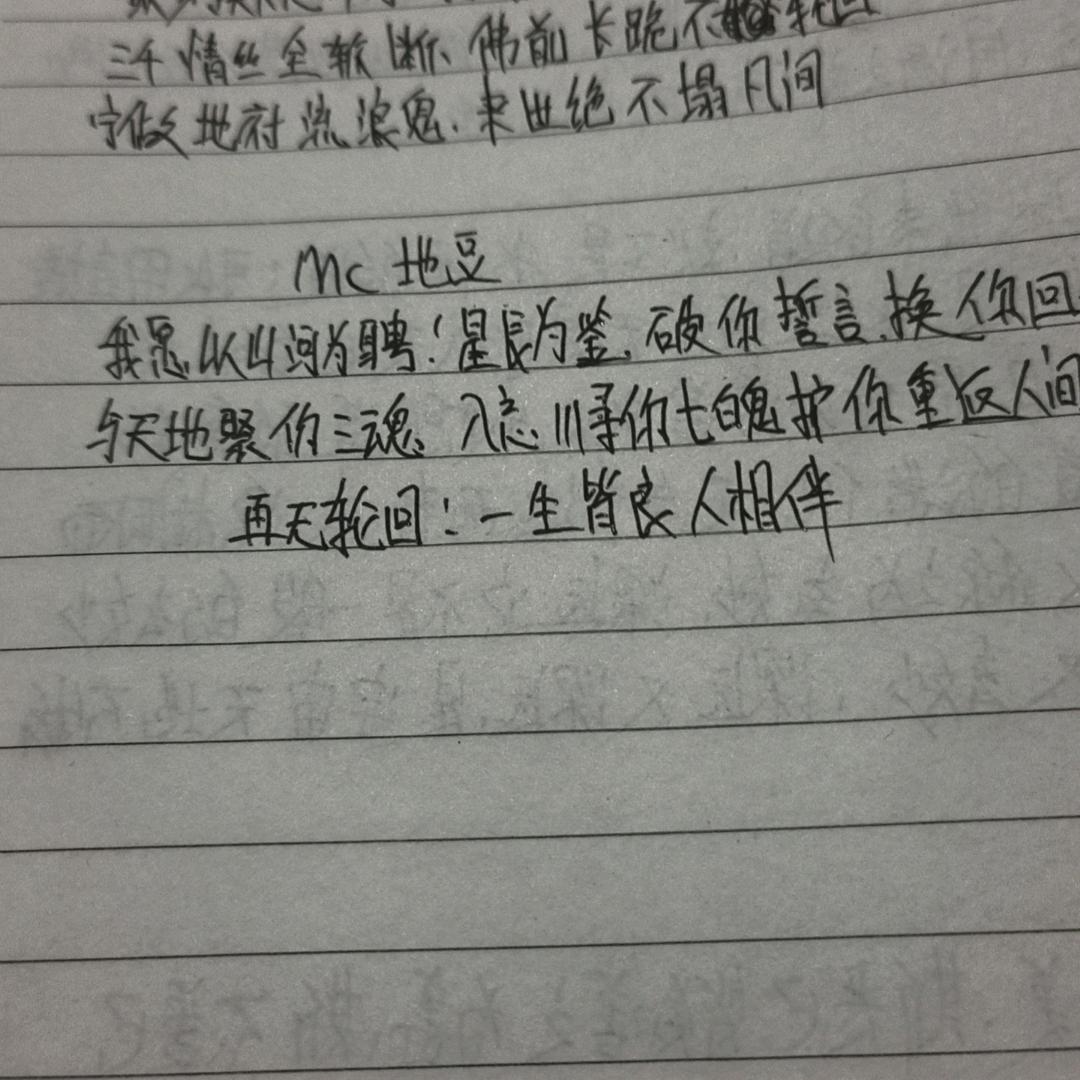 三千情丝全斩断、佛前长跪不轮回
宁做地府流浪鬼、来世绝不塌凡间
MC 地豆
我愿以山河为聘！星辰为鉴、破你誓言、换你回
与天地聚你三魂、入忘川寻你七魄护你重返人间
再无轮回！一生皆良人相伴